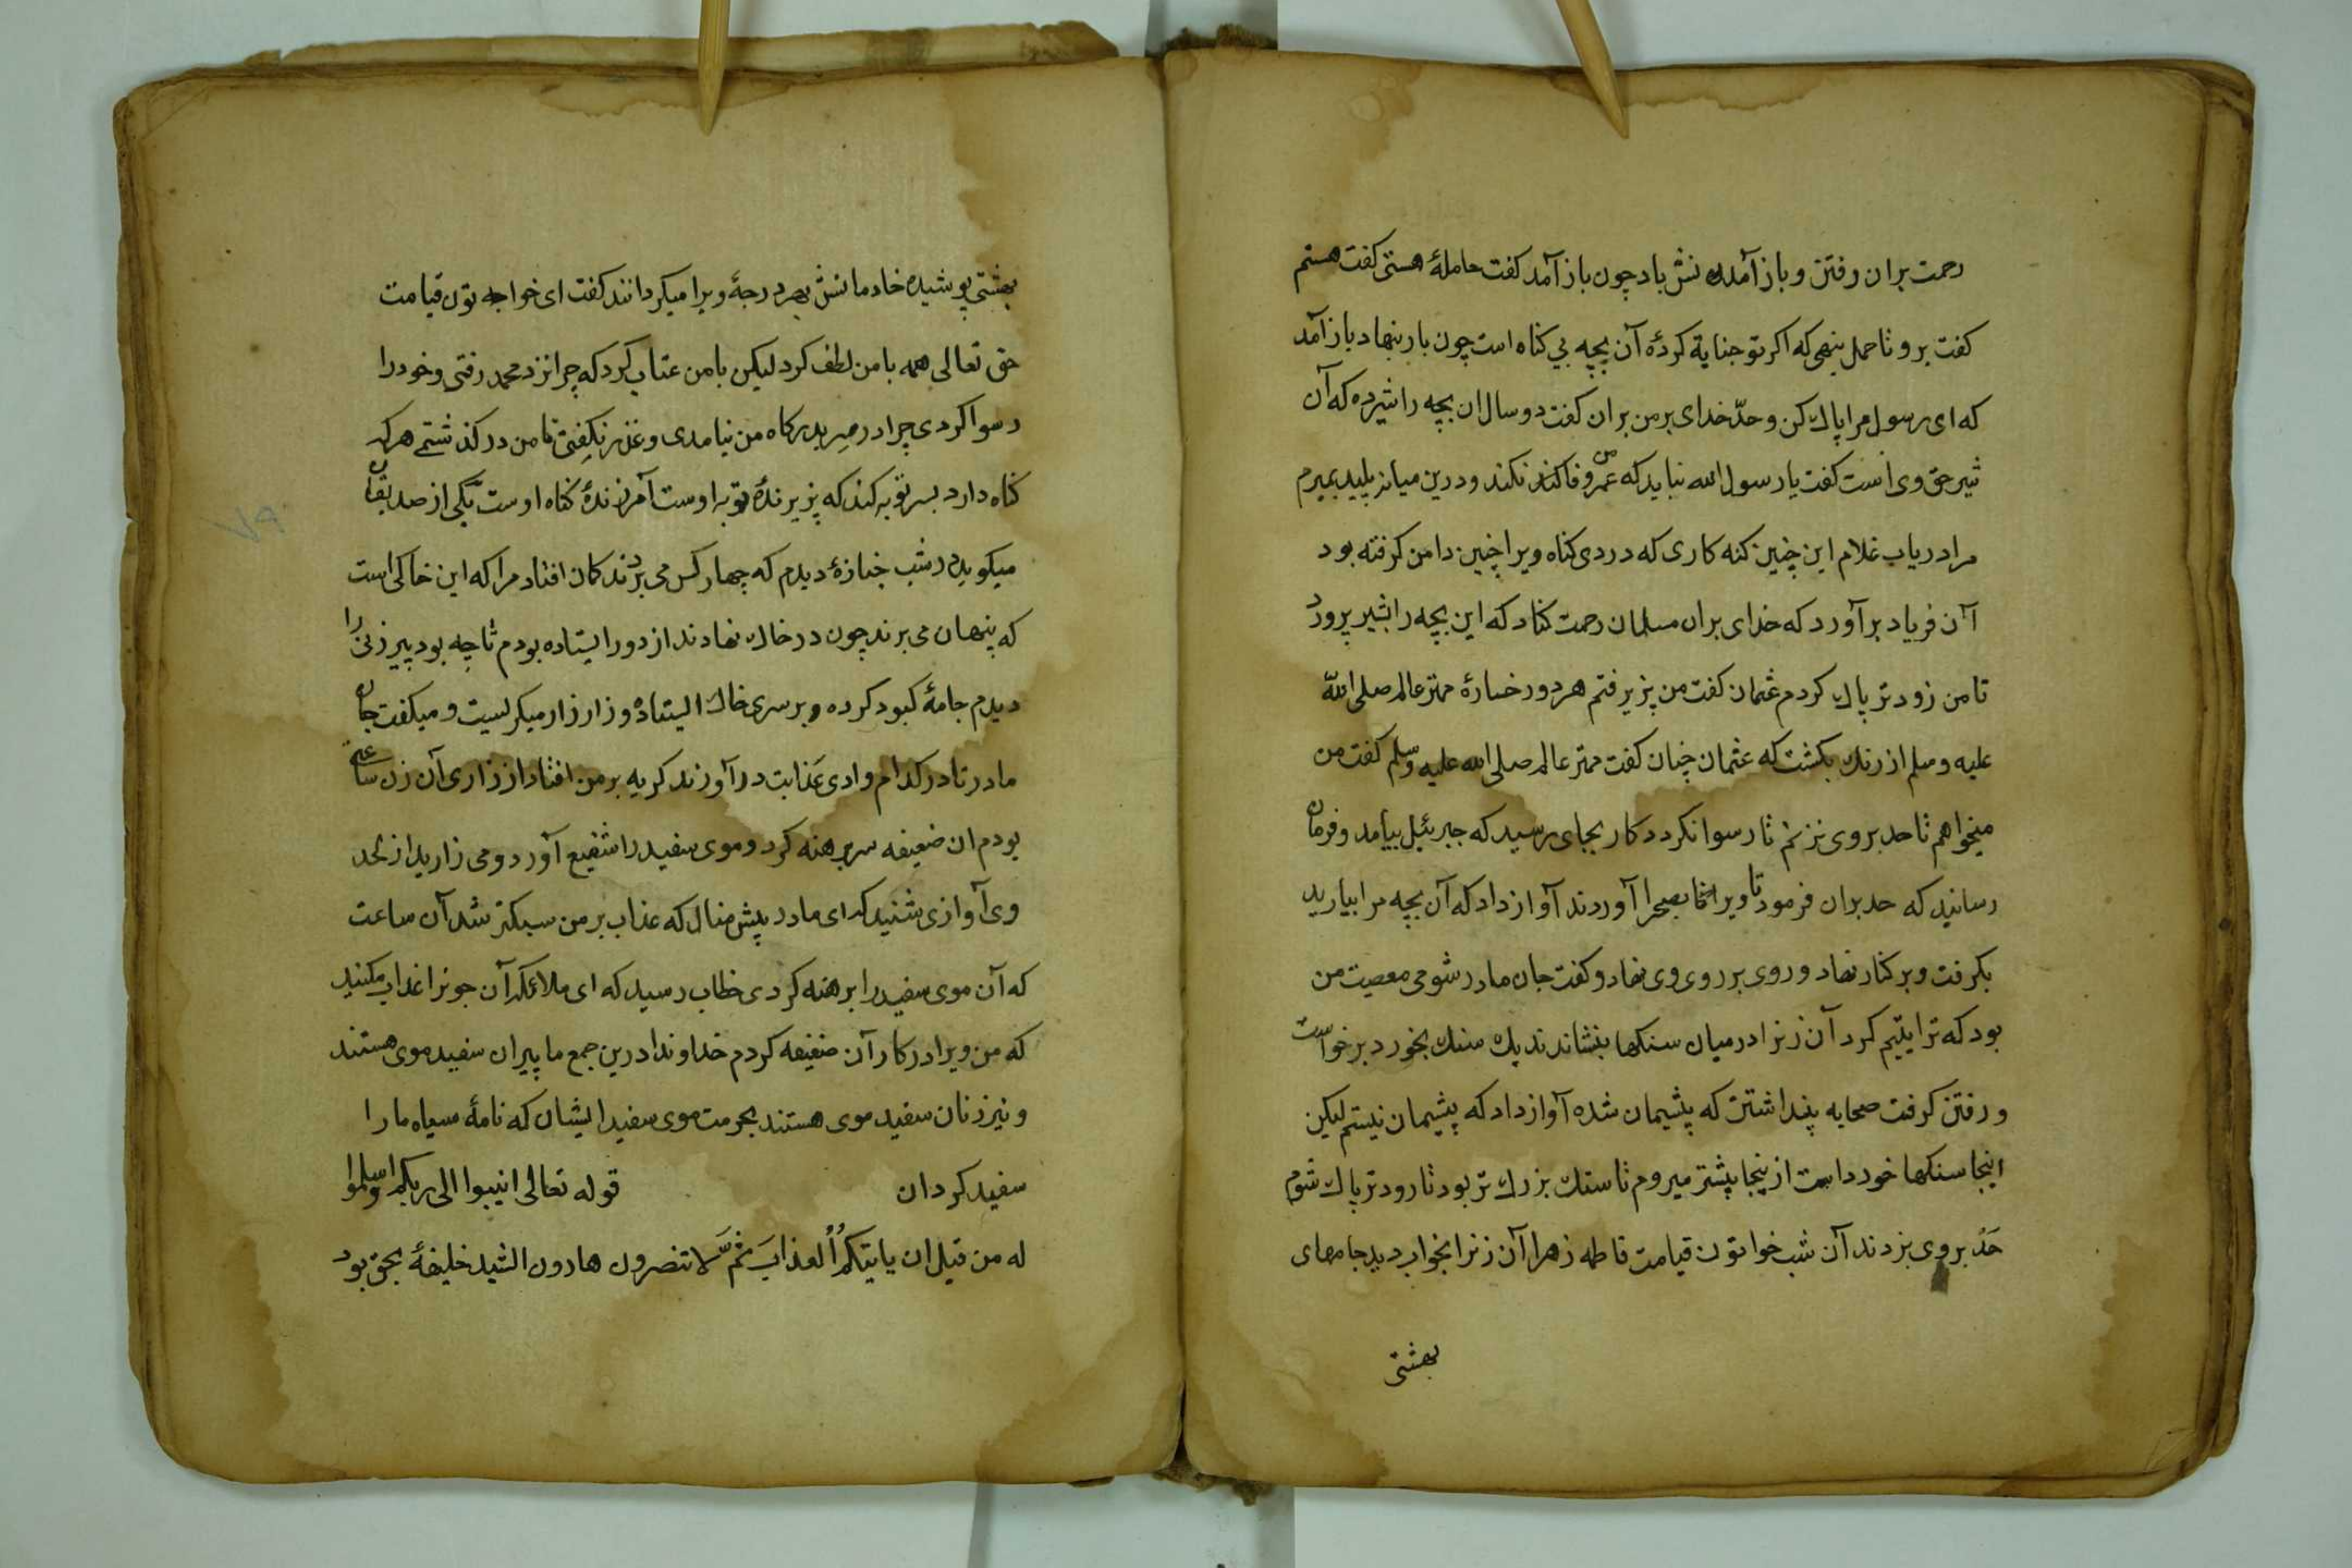 رحمت بران رفتن و باز آمدن نش باد چون باز آمد کفت حاملهٔ هستی کفت هستم
کفت برو تا حمل بنهی که اکر تو جنایة کردهٔ آن بچه بی کناه است چون بار بنهاد باز آمد
که ای رسول مرا پاک کن و حدّ خدای بر من بران کفت دو سال ان بچه را شیر ده که آن
شیر حق وی است کفت یا رسول الله نباید که عمر من وفا کند نکند و درین میانه پلید بمیرم
مرا دریاب غلام این چنین کنه کاری که دردی کناه ویرا چنین دامن کرفته بود
آن فریاد برآورد که خدای بران مسلمان رحمت کناد که این بچه را بشیر پرورد
تا من زودتر پاک کردم عثمان کفت من پزیرفتم هر دو رخسارهٔ مهتر عالم صلی الله
علیه وسلم از رنک بکشت که عثمان چنان کفت مهتر عالم صلی الله علیه وسلم کفت من
میخواهم تا حد بروی نزنم تا رسوا نکردد کار بجای رسید که جبرئیل بیامد و فرمان
رسانید که حد بران فرمود تا ویرا بصحرا آوردند آواز داد که آن بچه مرا بیارید
بکرفت و بر کنار نهاد و روی بر روی وی نهاد و کفت جان مادر شومی معصیت من
بود که ترا یتیم کرد آن زنرا در میان سنکها بنشاندند یک سنک بخورد برخواست
و رفتن کرفت صحابه پنداشتن که پشیمان شده آواز داد که پشیمان نیستم لیکن
اینجا سنکها خورد است از ینجا پشتر میروم تا سنک بزرک تر بود تا زودتر پاک شوم
حَدُ بروی بزدند آن شب خواتون قیامت فاطمه زهرا آن زنرا بخواب دید جامهای
بهشتی
بهشتی پوشیده خادمانش بهر درجهٔ ویرا میکردانند کفت ای خواجه تون قیامت
حق تعالی همه با من لطف کرد لیکن با من عتاب کرد که چرا نزد محمد رفتی و خود را
رسوا کردی چرا در سر بدرکاه من نیامدی و عذر نکفتی تا من درکذشتمی هر که
کناه دارد بسر توبه کند که پزیرندهٔ توبه اوست آمرزندهٔ کناه اوست یکی از صدیقان
میکوید در شب جنازهٔ دیدم که چهار کس می بردند کمان افتاد مرا که این خاکی است
که پنهان می برند چون در خاک نهادند از دور ایستاده بودم تا چه بود پیر زنی را
دیدم جامهٔ کبود کرده و بر سری خاک ایستاده و زار زار میکریست و میکفت جان
مادر تا در کدام وادی عذابت درآورند کریه بر من افتاد از زاری آن زن ساعتی
بودم ان ضعیفه سر برهنه کرد و موی سفید را شفیع آورد و می زارید از لحد
وی آوازی شنید که ای مادر پیش منال که عذاب بر من سبکتر شد آن ساعت
که آن موی سفید را برهنه کردی خطاب رسید که ای ملائکه آن جونرا عذاب مکنید
که من ویرا در کار آن ضعیفه کردم خداوندا درین جمع ما پیران سفید موی هستند
و نیز زنان سفید موی هستند بحرمت موی سفید ایشان که نامهٔ سیاه ما را
سفید کردان قوله تعالی انیبوا الی ربکم واسلموا
له من قبل ان یاتیکم العذاب ثم لا تنصرون هارون الشید خلیفهٔ بحق بود